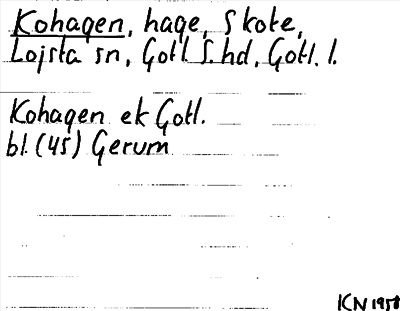 Kohagen, hage, Skote,
Lojsta sn, Gotl. S. hd, Gotl. l.
Kohagen ek Gotl.
bl. (45) Gerum
KN 1958